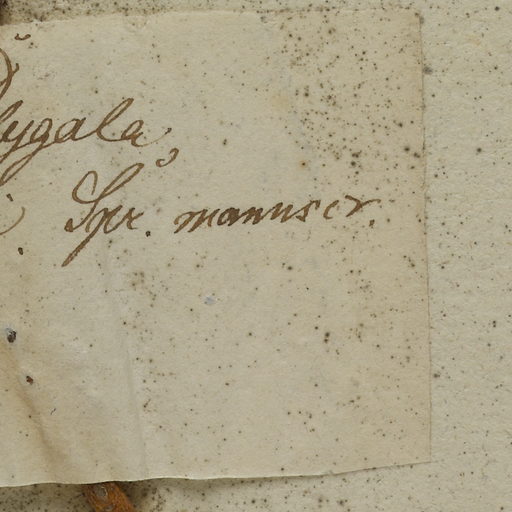 lygala
Spr. manuscr.